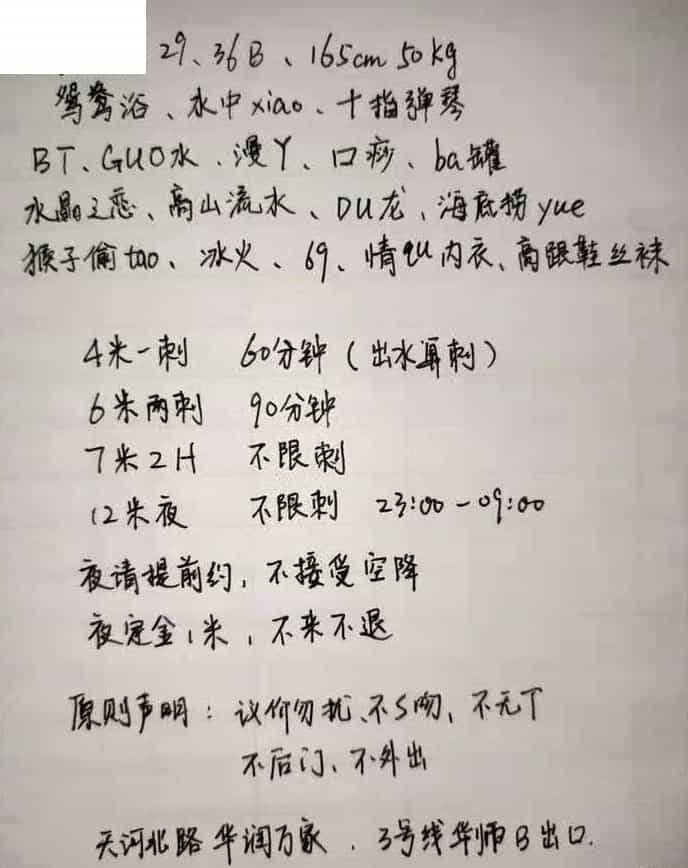 29、36B、165cm 50kg
鸳鸯浴、水中xiao、十指弹琴
BT、GUO水、漫Y、口痧、ba罐
水晶之恋、高山流水、DU龙、海底捞yue
猴子偷tao、冰火、69、情qu内衣、高跟鞋丝袜
4米一刺 60分钟（出水算刺）
6米两刺 90分钟
7米2H 不限刺
12米夜 不限刺 23:00-09:00
夜请提前约，不接受空降
夜定金1米，不来不退
原则声明：议价勿扰、不S吻、不无T
不后门、不外出
天河北路华润万家，3号线华师B出口.